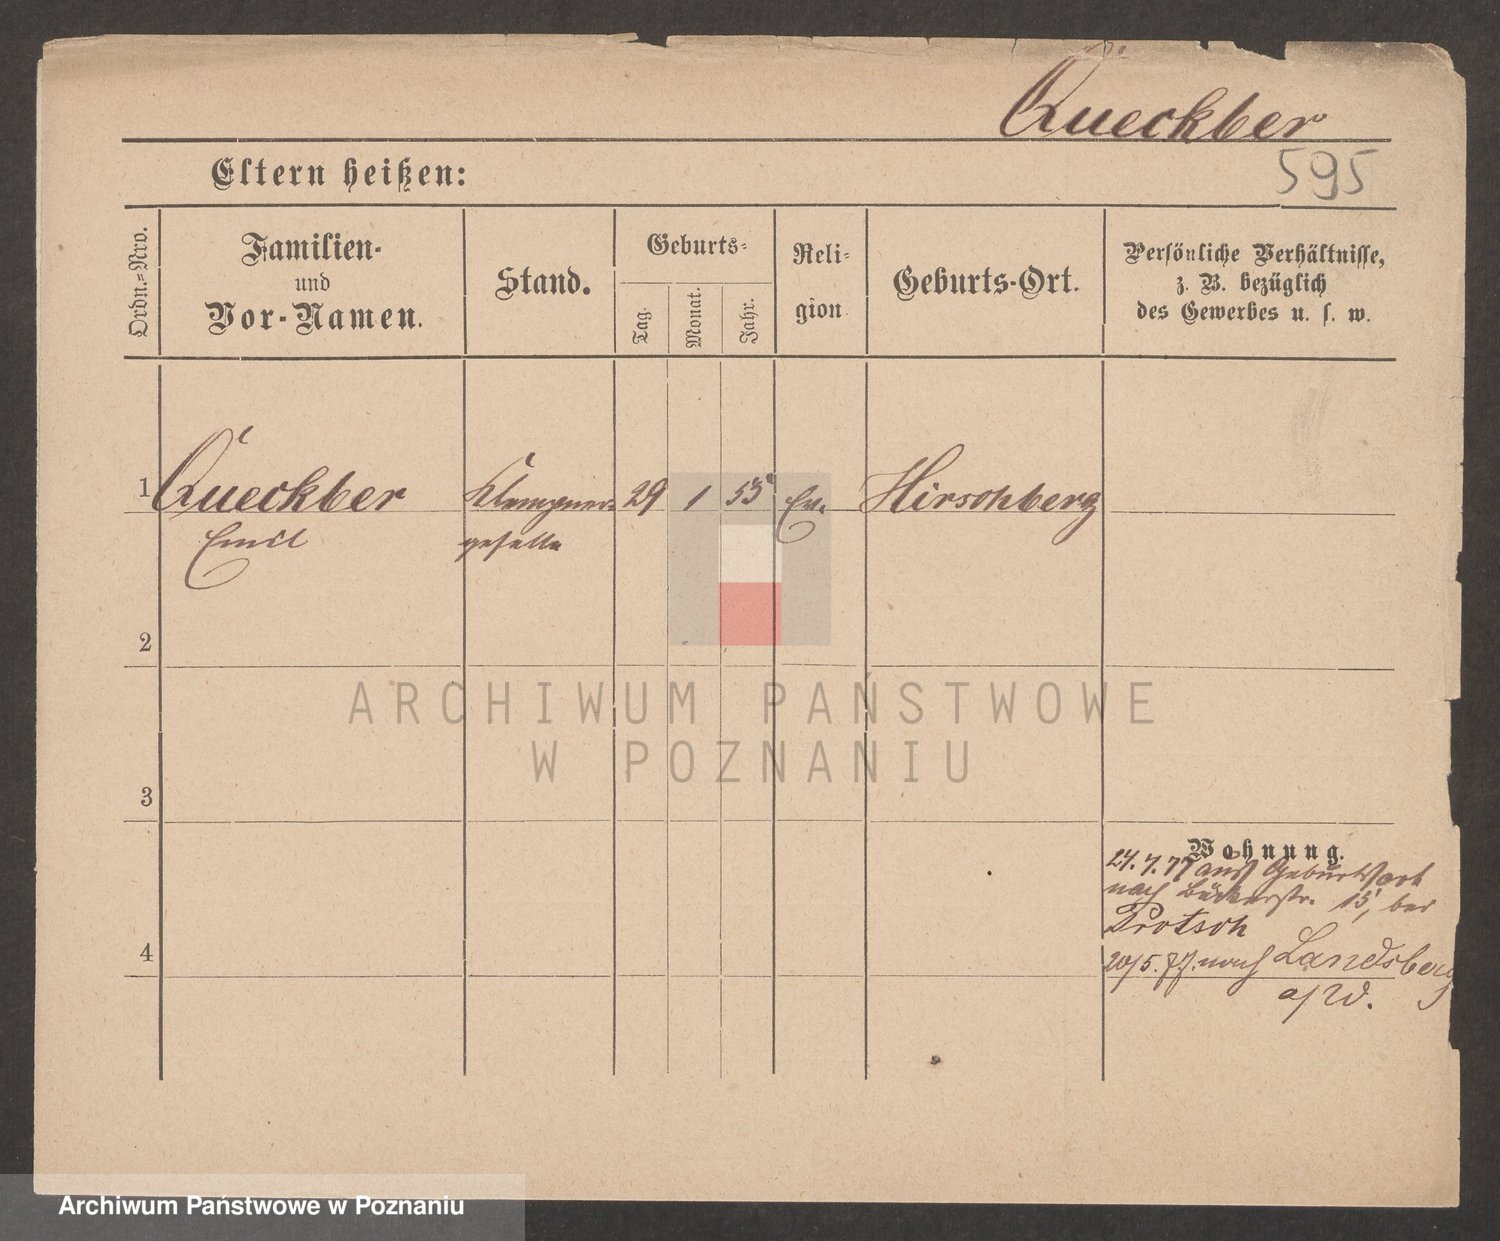 Queckber
595
Eltern heißen:
Ordn.=Nro.
Familien-
und
Vor-Namen.
Stand.
Geburts-
Tag.
Monat.
Jahr.
Reli-
gion
Geburts-Ort.
Persönliche Verhältnisse,
z. B. bezüglich
des Gewerbes u. s. w.
1 Queckber Klempner- 29 1 53 Ev. Hirschberg
Emil geselle
2
ARCHIWUM PAŃSTWOWE
W POZNANIU
3
Wohnung.
24.4.77 aus Geburtsort
nach Bäckerstr. 15, bei
Protsch
4
20/5.77. nach Landsberg
a/W.
Archiwum Państwowe w Poznaniu